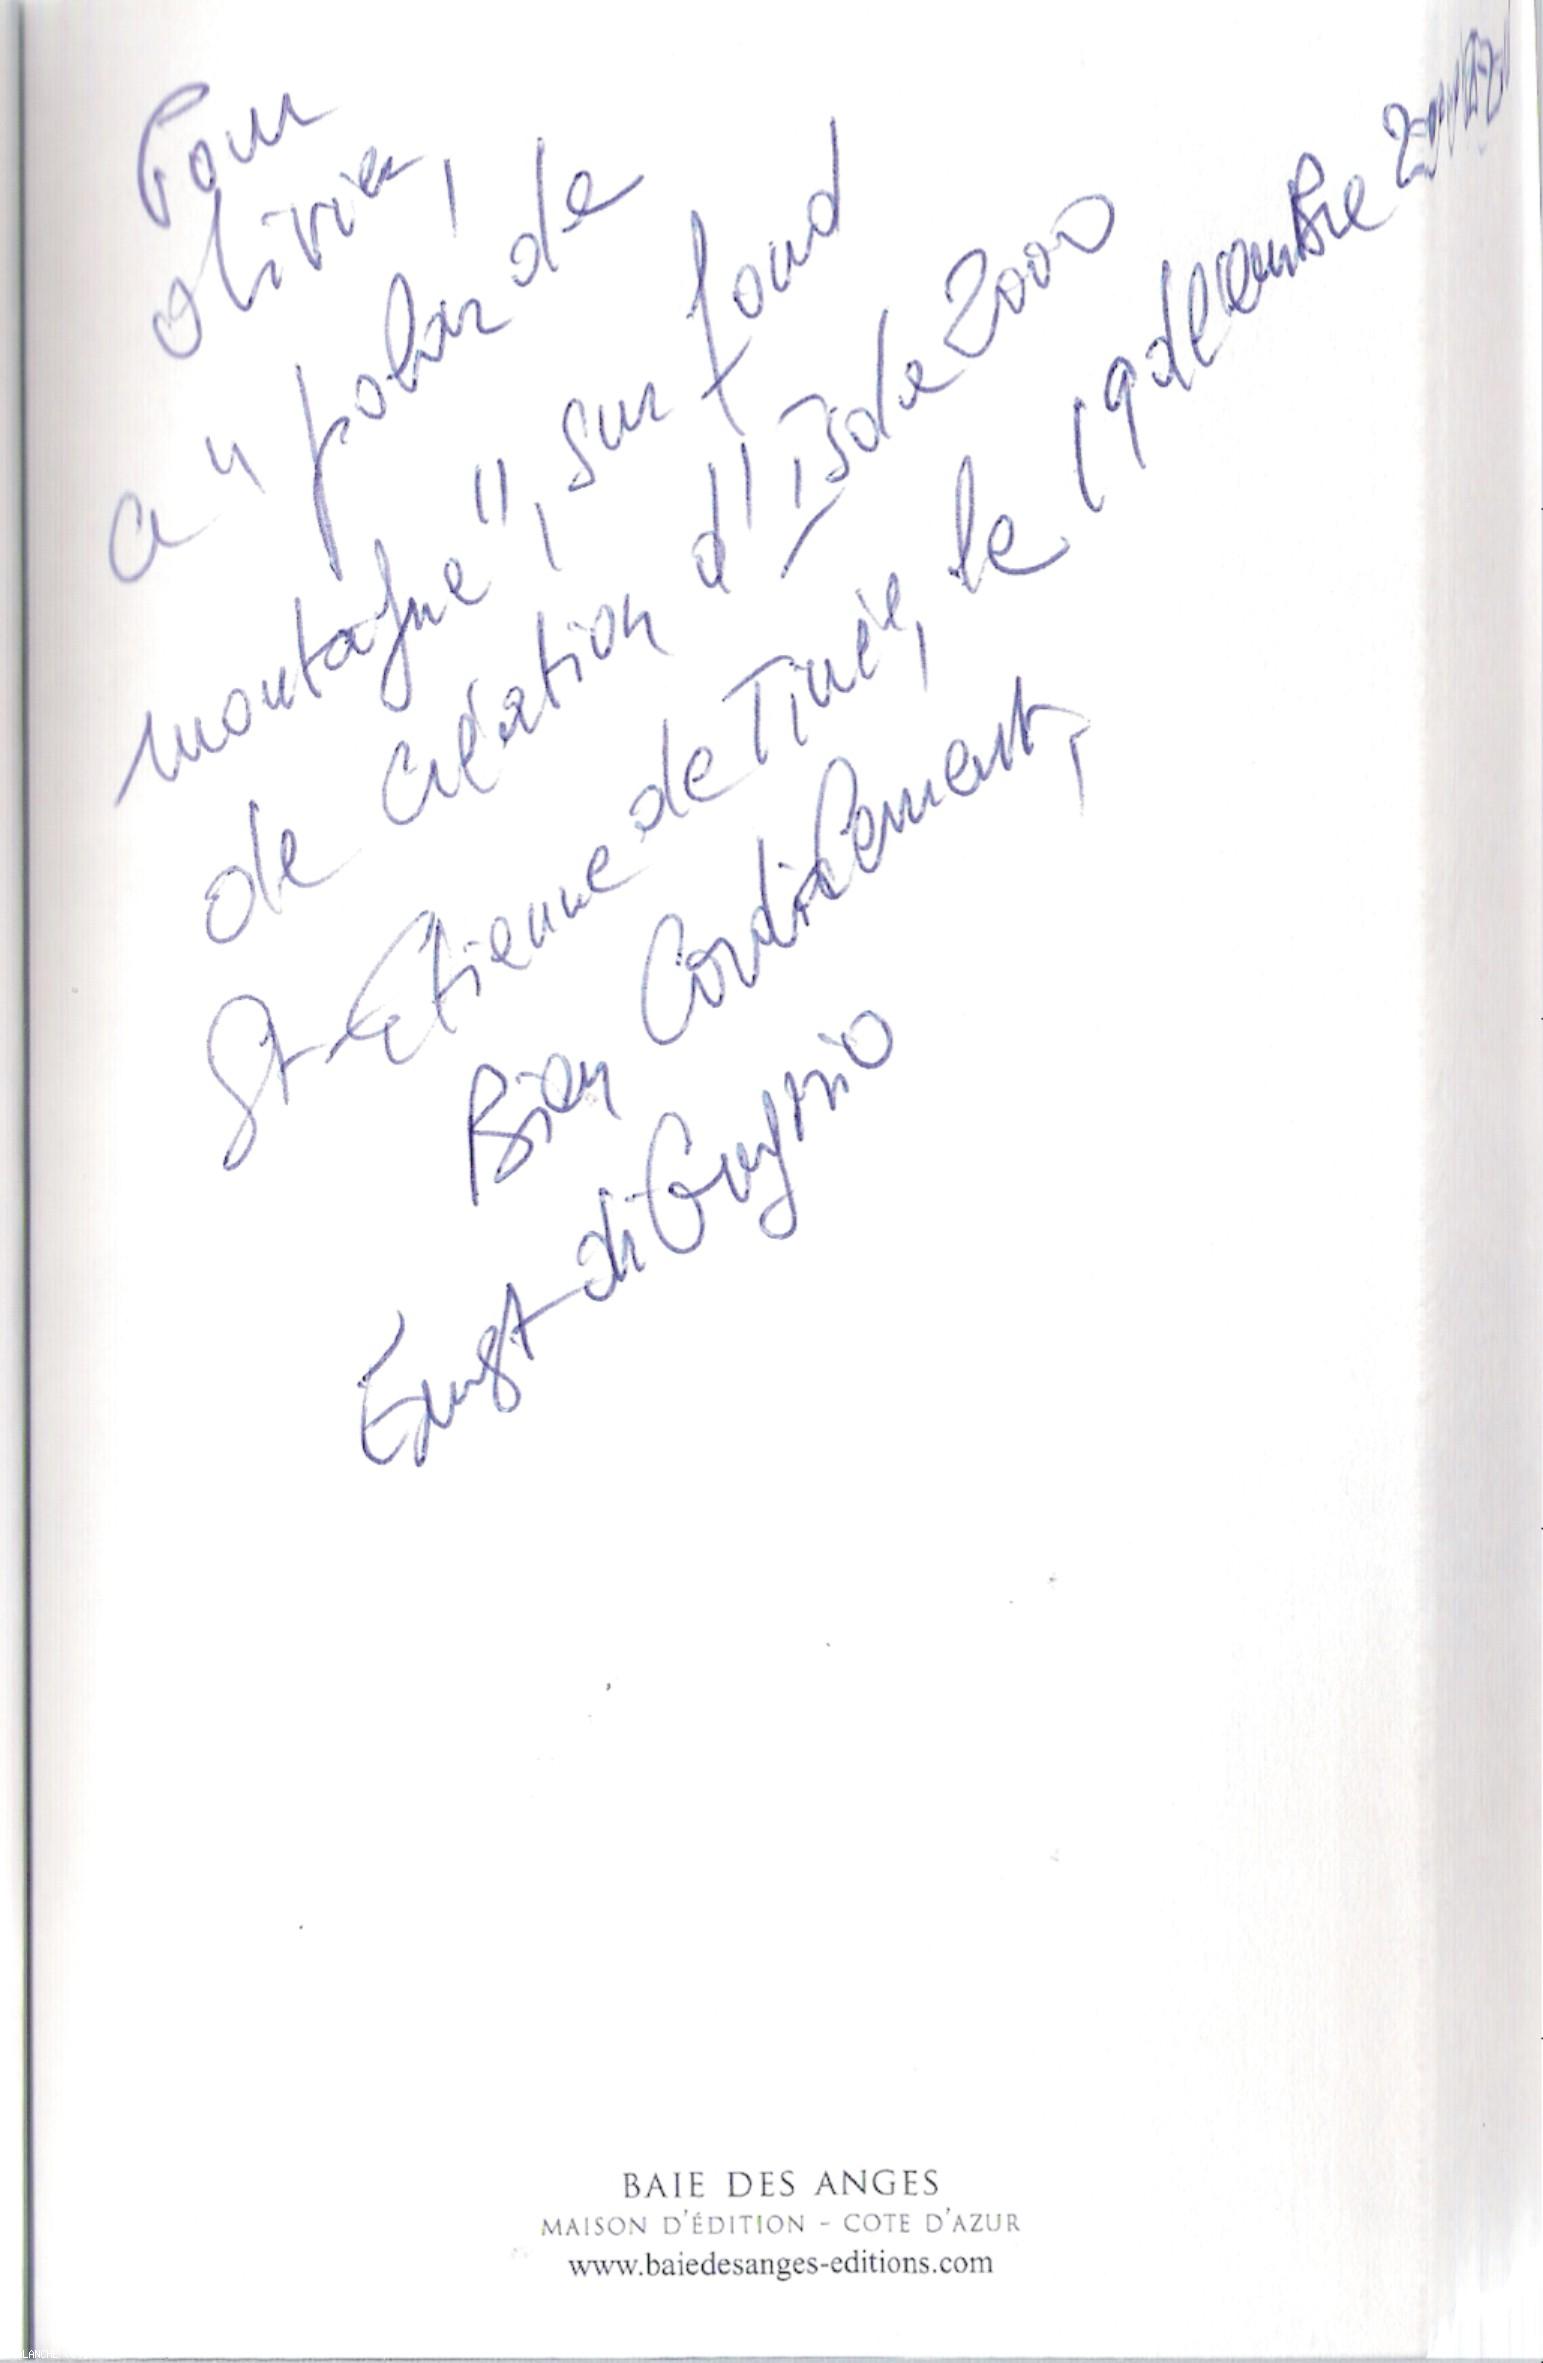 Pour
Olivier,
a " polar de
montagne ", sur fond
de création d'Isola 2000
St-Etienne de Tinée, le 19 décembre
Bien Cordialement,
Ernest di Gregorio
BAIE DES ANGES
MAISON D'ÉDITION - COTE D'AZUR
www.baiedesanges-editions.com